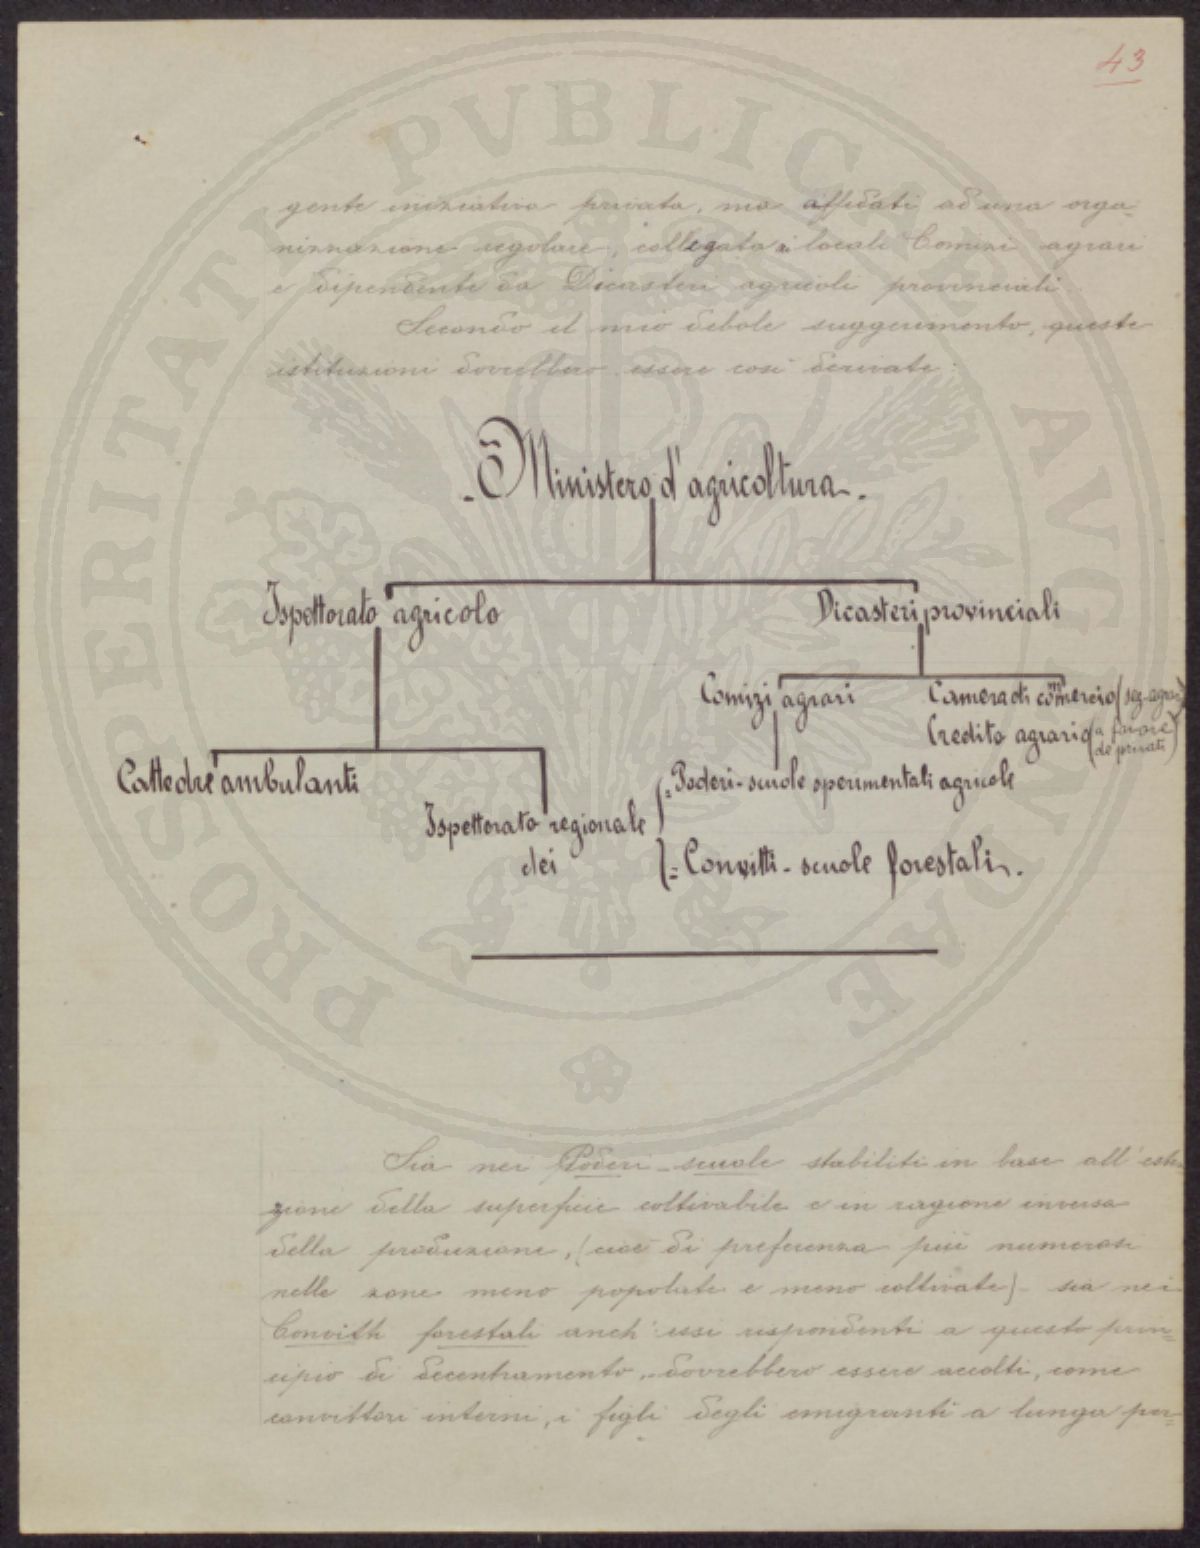 43
gente iniziativa privata, ma affidati ad una orga-
nizzazione regolare, collegata ai locali Comizi agrari
e dipendente da Dicasteri agricoli provinciali.
Secondo il mio debole suggerimento, queste
istituzioni dovrebbero essere così derivate:
- Ministero d'agricoltura -.
Ispettorato agricolo Dicasteri provinciali
Comizi agrari Camera di commercio (sez. agrar.)
Credito agrario (a favore
de' privati)
Cattedre ambulanti
Poderi-scuole sperimentali agricole
Ispettorato regionale
dei
Convitti-scuole forestali.
Sia nei Poderi-scuole stabiliti in base all'esten-
zione della superficie coltivabile e in ragione inversa
della produzione, (cioè di preferenza più numerosi
nelle zone meno popolate e meno coltivate) - sia nei
Convitti forestali anch'essi rispondenti a questo prin=
cipio di decentramento, dovrebbero essere accolti, come
convittori interni, i figli degli emigranti a lunga per=
PROSPERITATI PVBLICAE AVGENDAE